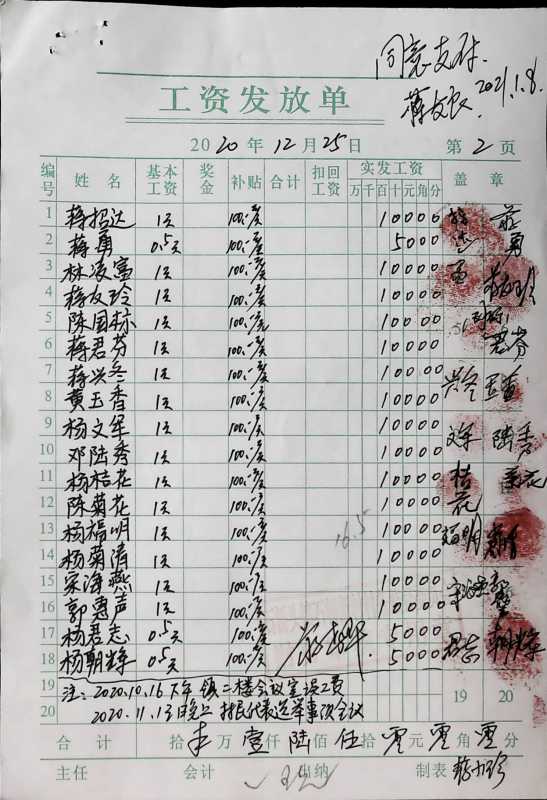 同意支付.
2021.1.8.
工资发放单
2020年12月25日 第2页
编号 姓名 基本工资 奖金 补贴 合计 扣回工资 实发工资 盖章
万千百十元角分
1 蒋招达 1天 100.-/天 10000
2 蒋勇 0.5天 100.-/天 5000 勇
3 林凌富 1天 100.-/天 10000 富
4 蒋友玲 1天 100.-/天 10000
5 陈国标 1天 100.-/天 10000
6 蒋君芬 1天 100.-/天 10000 君芬
7 蒋兴冬 1天 100.-/天 10000 兴冬
8 黄玉香 1天 100.-/天 10000 玉香
9 杨文军 1天 100.-/天 10000 文军
10 邓陆秀 1天 100.-/天 10000 陆秀
11 杨桔花 1天 100.-/天 10000 桔花
12 陈菊花 1天 100.-/天 10000
13 杨福明 1天 100.-/天 10000 福明
14 杨菊清 1天 100.-/天 10000
15 宋海燕 1天 100.-/天 10000
16 郭惠声 1天 100.-/天 10000
17 杨君志 0.5天 100.-/天 5000 君志
18 杨朝辉 0.5天 100.-/天 5000 朝辉
16.5
19 注:2020.10.16下午镇二楼会议室误工费 19 20
20 2020.11.13日晚上 村民代表选举事项会议
合计 拾 万壹仟陆佰伍拾零元零角零分
主任 会计 出纳 制表